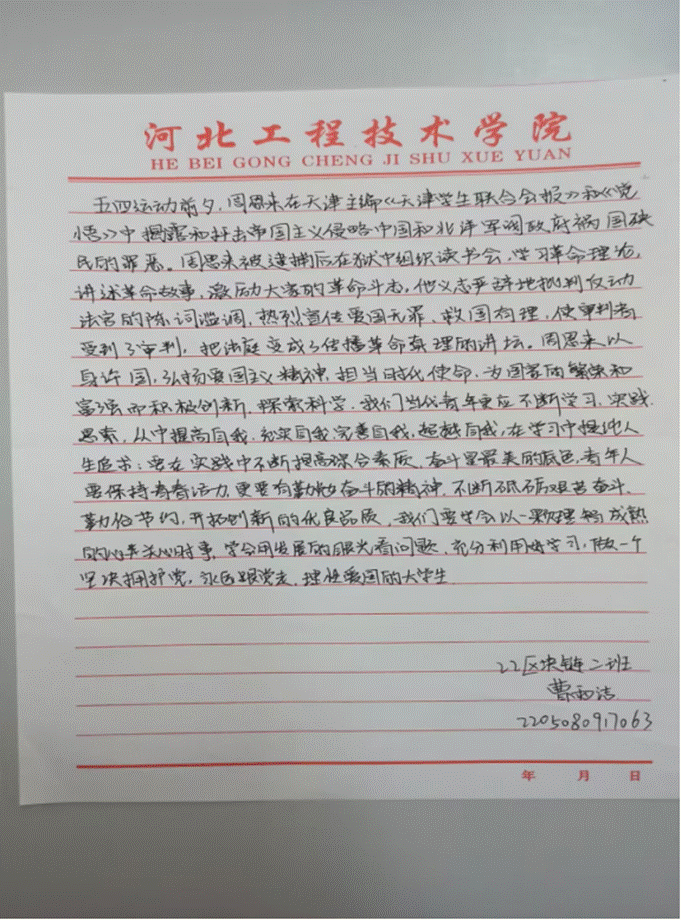 河北工程技术学院
HE BEI GONG CHENG JI SHU XUE YUAN
五四运动前夕,周恩来在天津主编《天津学生联合会报》和《觉
悟》中揭露和抨击帝国主义侵略中国和北洋军阀政府祸国殃
民的罪恶。周恩来被逮捕后在狱中组织读书会,学习革命理论,
讲述革命故事,激励大家的革命斗志,他义正严辞地批判反动
法官的陈词滥调,热烈宣传爱国无罪、救国有理,使审判者
受到了审判,把法庭变成了传播革命真理的讲坛。周恩来以
身许国,弘扬爱国主义精神,担当时代使命,为国家的繁荣和
富强而积极创新,探索科学,我们当代青年更应不断学习,实践,
思索,从中提高自我,充实自我,完善自我,超越自我,在学习中提他人
生追求;要在实践中不断提高综合素质,奋斗是最美的底色,青年人
要保持青春活力,更要有勤勉奋斗的精神,不断砥砺艰苦奋斗、
勤俭节约,开拓创新的优良品质,我们要学会以一颗理智成熟
的心关心时事,学会用发展的眼光看问题,充分利用好学习,做一个
坚决拥护党,永远跟党走,理性爱国的大学生
22区块链二班
曹雨洁
2205080917063
年 月 日